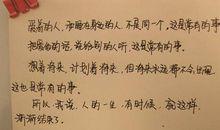 爱着的人，和睡在身边的人，不是同一个。这是常有的事。
把想你的话，说给别的人听，这是常有的事。
想着将来，计划着将来，但将来永远都不会出现，
这也是常有的事。
所以，我说，人的一生，有时候，就这样，
渐渐结束了。